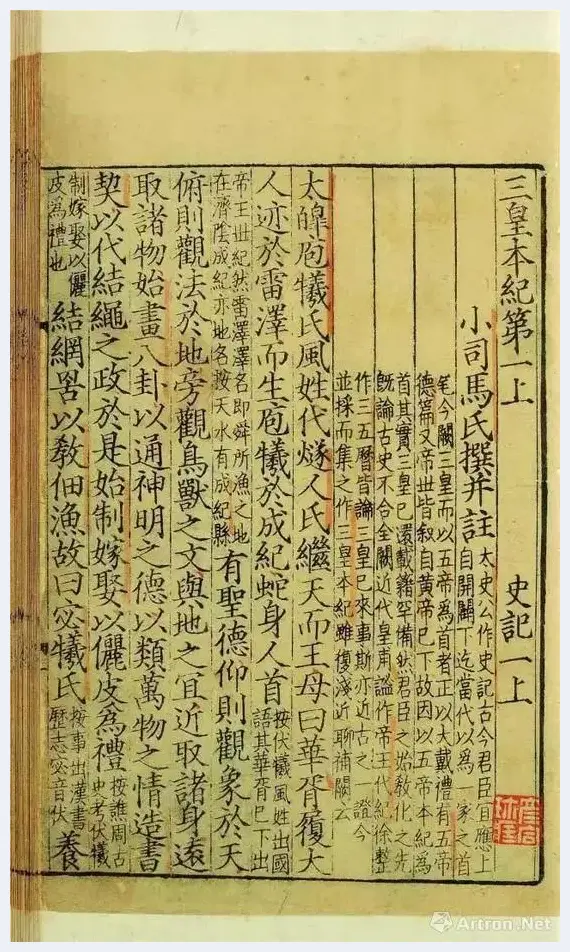 三皇本紀第一上 史記一上
小司馬氏撰并註 太史公作史記古今君臣宜應上
自開闢下迄當代以為一家之首
今闕三皇而以五帝為首者正以大戴禮有五帝
德篇又帝世皆叙自黃帝已下故因以五帝本紀為
首其實三皇已還載籍罕備然君臣之始教化之先
既論古史不合全闕近代皇甫謐作帝王代紀徐整
作三五曆皆論三皇已來事斯亦近古之一證今
並採而集之作三皇本紀雖復淺近聊補闕云
大皥庖犧氏風姓代燧人氏繼天而王母曰華胥履大
人迹於雷澤而生庖犧於成紀蛇身人首 按伏犧風姓出國
語其華胥已下出
帝王世紀然雷澤澤名即舜所漁之地
在濟陰成紀亦地名按天水有成紀縣 有聖德仰則觀象於天
俯則觀法於地旁觀鳥獸之文與地之冝近取諸身遠
取諸物始畫八卦以通神明之德以類萬物之情造書
契以代結繩之政於是始制嫁娶以儷皮為禮 按譙周古
史考伏犧
制嫁娶以儷
皮為禮也 結網罟以教佃漁故曰宓犧氏 按事出漢書
歷志宓音伏 養
Artron.Net